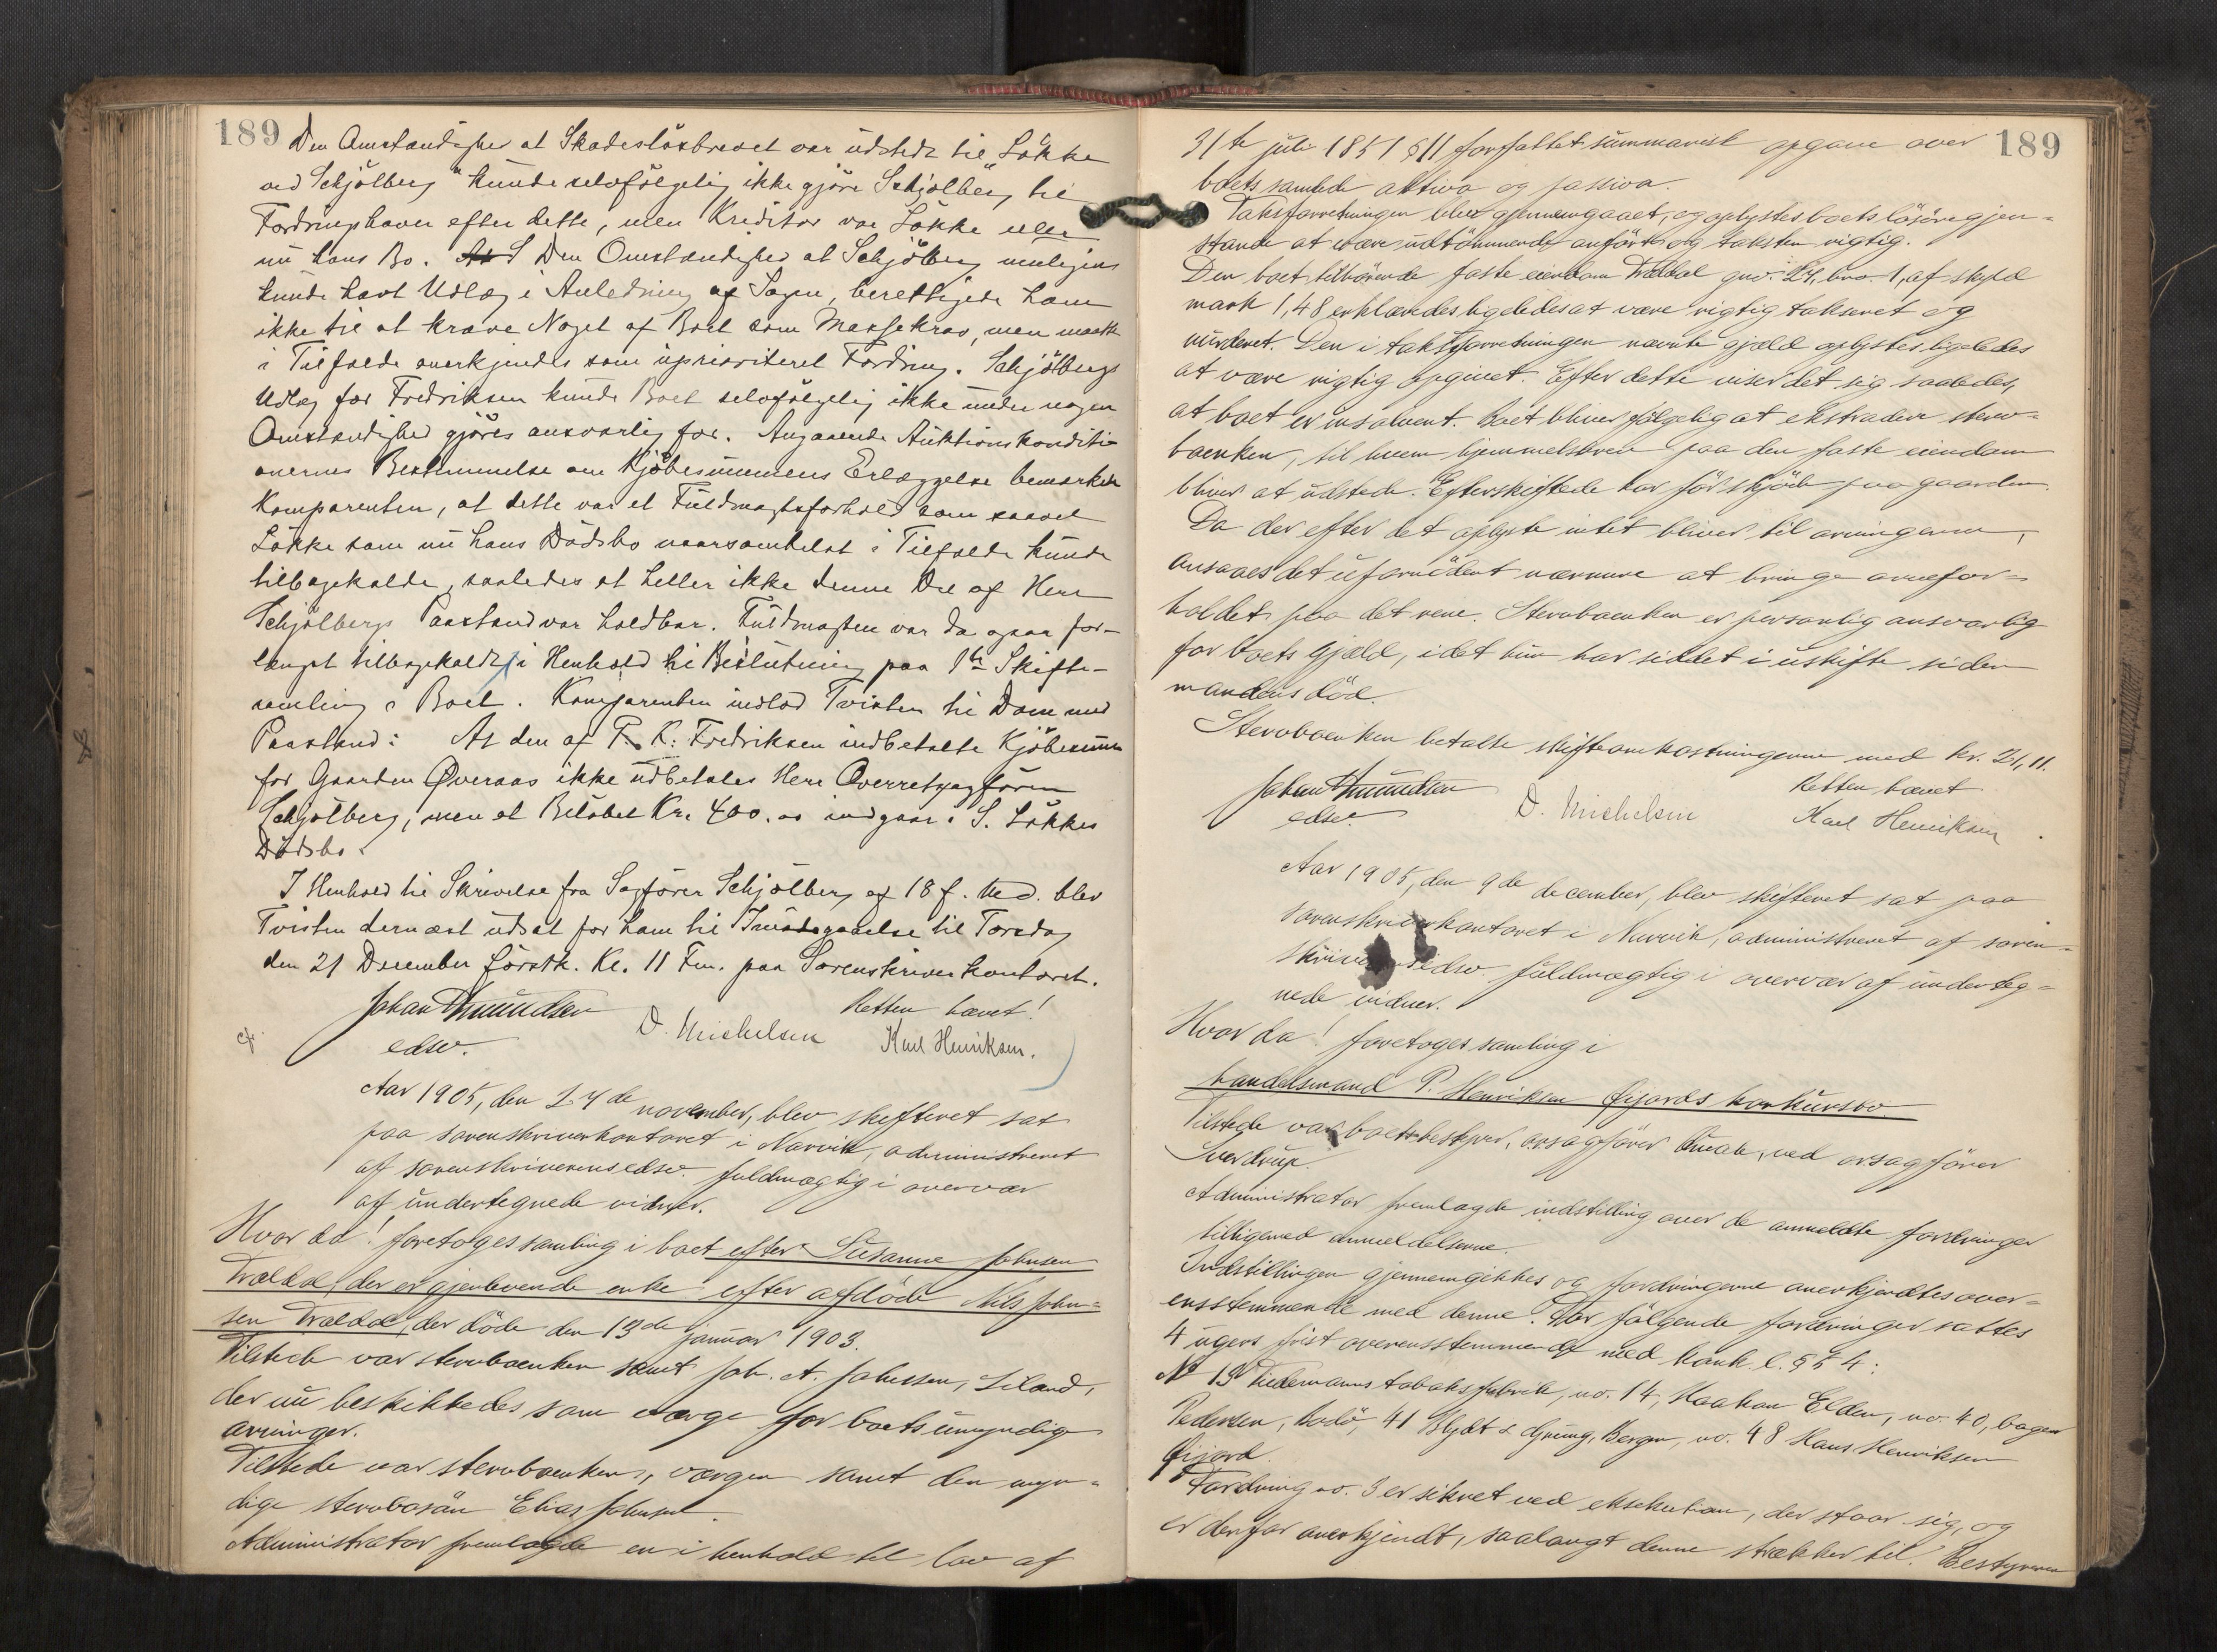 189
Den Omstændighed at Skadeslösbrevet var udstedt til "Løkke
ved Schjölberg" kunde selvfölgelig ikke gjöre Schjölberg til
Fordringshaver efter dette, men Kreditor var Løkke eller
nu hans Bo. Den Omstændighed at Schjölberg muligens
kunde havt Udlæg i Anledning af Sagen, berettigede ham
ikke til at kræve Noget af Boet som Massekrav, men maatte
i Tilfælde anerkjendes som uprioriteret Fordring. Schjölbergs
Udlæg for Fredriksen kunde Boet selvfölgelig ikke under nogen
Omstændighed gjöres ansvarlig for. Angaaende Auktionskonditi-
onernes Bestemmelse om Kjöbesummens Erlæggelse bemærkede
Komparenten, at dette var et Fuldmagtsforhold som saavel
Løkke som nu hans Dödsbo naarsomhelst i Tilfælde kunde
tilbagekalde, saaledes at heller ikke denne Del af Herr
Schjölbergs Paastand var holdbar. Fuldmagten var da ogsaa for-
længst tilbagekaldt i Henhold til Beslutning paa 1ste Skifte-
samling i Boet. Komparenten indlod Tvisten til Dom med
Paastand: At den af P. K. Fredriksen indbetalte Kjöbesum
for Gaarden Øveraas ikke udbetales Herr Overretssagförer
Schjölberg, men at Belöbet Kr. 400.00 indgaar i S. Løkkes
Dödsbo.
I Henhold til Skrivelse fra Sagförer Schjölberg af 18 f. Md. blev
Tvisten dernæst udsat for ham til Imödegaaelse til Torsdag
den 21 December förstk. Kl. 11 Fm. paa Sorenskriverkontoret.
Retten hævet!
Johan Amundsen
edsv.
D. Michelsen
Karl Henriksen.
Aar 1905, den 27de november, blev skifteret sat
paa sorenskriverkontoret i Narvik, administreret
af sorenskriverens edsv. fuldmægtig i overvær
af undertegnede vidner.
Hvor da! foretoges samling i boet efter Susanne Johnsen
Trældal, der er gjenlevende enke efter afdöde Nils John-
sen Trældal, der döde den 13de januar 1903.
Tilstede var stervboenken samt Joh. A. Johnsen, Liland,
der nu beskikkedes som værge for boets umyndige
arvinger.
Tilstede var stervboenken, værgen samt den myn-
dige stervbosön Elias Johnsen.
Administrator fremlagde en i henhold til lov af
189
31te juli 1851 § 11 forfattet summarisk opgave over
boets samlede aktiva og passiva.
Taksforretningen blev gjennemgaaet, og oplystes boets lösöregjen-
stande at være udtömmende anfört og taksten rigtig.
Den boet tilhörende faste eiendom Trældal gno. 24, bno. 1, af skyld
mark 1,48 erklæredes ligeledes at være rigtig takseret og
vurderet. Den i taksforretningen nævnte gjæld oplystes ligeledes
at være rigtig opgivet. Efter dette viser det sig saaledes,
at boet er insolvent. Boet bliver fölgelig at ekstradere sterv-
boenken, til hvem hjemmelsbrev paa den faste eiendom
bliver at udstede. Efterskiftede har för skjöde paa gaarden.
Da der efter det oplyste intet bliver til arvingerne,
ansaaes det ufornödent nærmere at bringe arvefor-
holdet paa det rene. Stervboenken er personlig ansvarlig
for boets gjæld, idet hun har siddet i uskifte siden
mandens död.
Stervboenken betalte skifteomkostningerne med kr. 21,11.
Retten hævet
Johan Amundsen
edsv.
D. Michelsen
Karl Henriksen
Aar 1905, den 9de december, blev skifteret sat paa
sorenskriverkontoret i Narvik, administreret af soren-
skriverens edsv. fuldmægtig i overvær af underteg-
nede vidner.
Hvor da! foretoges samling i
handelsmand P. Henriksen Øijords konkursbo
Tilstede var boets bestyrer, orsagförer Quale, ved orsagförer
Sverdrup.
Administrator fremlagde indstilling over de anmeldte fordringer
tilligemed anmeldelserne.
Indstillingen gjennemgikkes og fordringerne anerkjendtes over-
ensstemmende med denne. For fölgende fordringer sattes
4 ugers frist overensstemmende med konk. l. § 54:
No 13 Tiedemanns tobaksfabrik, no. 14, Haakon Elden, no. 40, bager
Pedersen, Bodö, 41 Blydt & Gjening, Bergen, no. 48 Hans Henriksen
Øijord.
Fordring no. 3 er sikret ved eksekution, der staar sig, og
er derfor anerkjendt, saalangt denne strækker til. Bestyreren